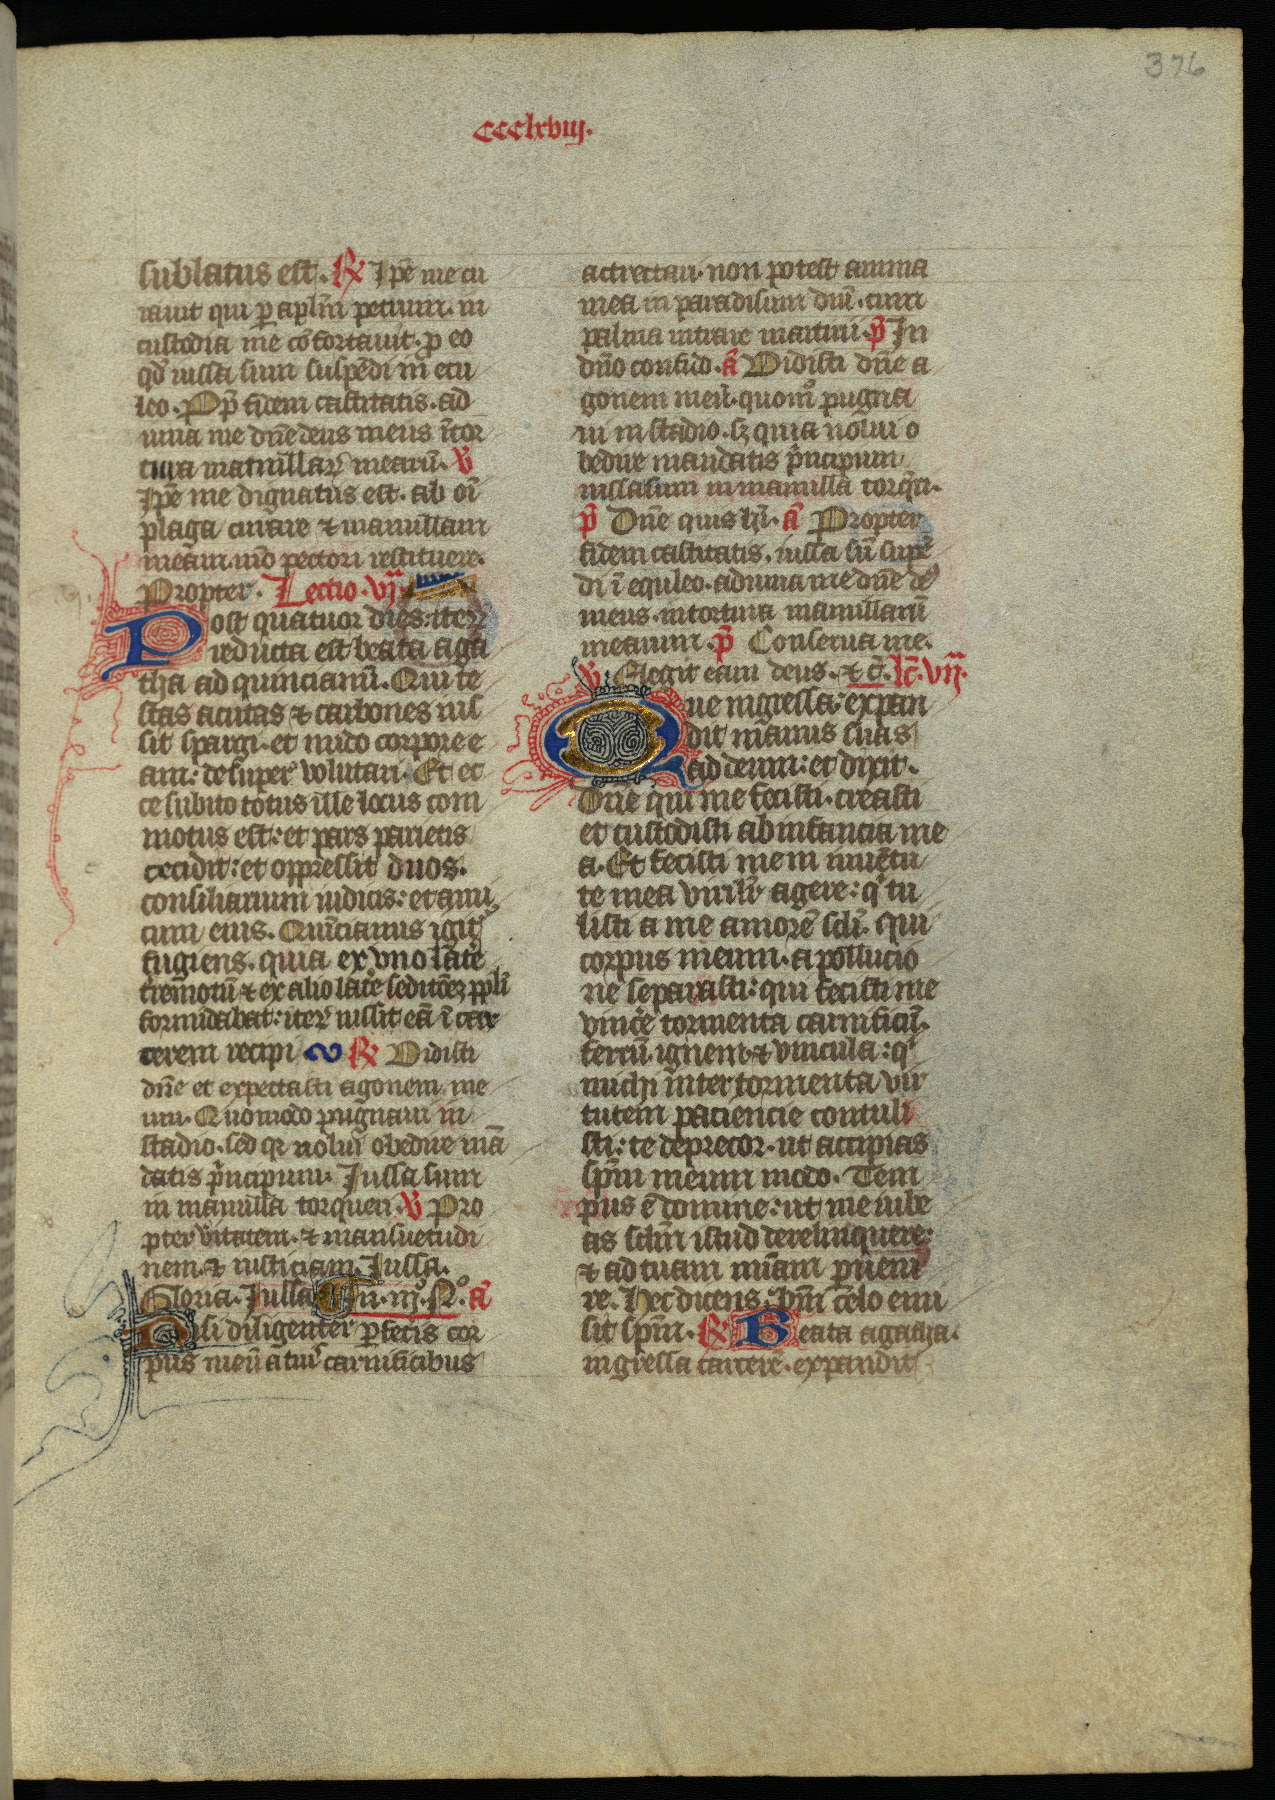 376
ccclxviij.
sublatus est. R Ipē me cu
rauit qui ꝑ aplm̄ petrum. in
custodia me cōfortauit. ꝓ eo
qd̄ iussa sum suspēdi in ecu
leo. Ppt̄ fidem castitatis. ad
iuua me dn̄e deus meus ī tor
tura mamillarꝝ mearū. V
Ipē me dignatus est. ab oī
plaga curare ⁊ mamillam
meam. mō pectori restituere.
Propter. Lectio. vj.
Post quatuor dies: iterꝝ
reducta est beata aga
tha ad quincianū. Qui te
stas acutas ⁊ carbones ius
sit spargi. et nudo corpore e
am: desuper volutari. Et ec
ce subito totus ille locus com
motus est: et pars parietis
cecidit: et oppressit duos.
consiliarium iudicis: et ami
cum eius. Quīcianus igit̄
fugiens. quia ex vno latē
tremotū ⁊ ex alio latē seditōeꝫ ppli
formidabat: iter̄ iussit eā ī car
cerem recipi R Vidisti
dn̄e et expectasti agonem me
um. Quomodo pugnaui in
stadio. sed qr nolui obedire mā
datis p̄ncipum. Iussa sum
in mamilla torqueri. V Pro
pter v̄itatem. ⁊ mansuetudi
nem ⁊ iusticiam. Iussa.
Gloria. Iussa In. iijͦ. Nͦ. a
Nisi diligenter ꝑfecis cor
pus meū a tuis carnificibus
actrectari. non potest anima
mea in paradisum dn̄i. cum
palma intrare martirii. p̄ In
dn̄o confido. a Vidisti dn̄e a
gonem meū. quomͦ pugna
ui in stadio. sꝫ quia nolui o
bedire mandatis p̄ncipum
iussa sum in mamilla torq̄ri.
p̄ Dn̄e quis hī. a Propter
fidem castitatis. iussa sū suspē
di ī equleo. adiuua me dn̄e dꝰ
meus. in tortura mamillarū
mearum. p̄ Conserua me.
V. Elegit eam deus. ⁊ c̄. lc̄. vij.
Que ingressa: expan
dit manus suas
ad deum: et dixit.
Dn̄e qui me fecisti. creasti
et custodisti ab infancia me
a. Et fecisti me in iuuētu
te mea viriliṫ agere: qͥ tu
listi a me amorē scli. qui
corpus meum. a pollucio
ne separasti: qui fecisti me
vincē tormenta carnificū.
ferrū. ignem. ⁊ vincula: qͥ
michi inter tormenta vir
tutem paciencie contuli
sti: te deprecor. ut accipias
spm̄ meum modo. Tem
pus ē domine: ut me iube
as sclm̄ istud derelinquere:
⁊ ad tuam mīam ꝑueni
re. Hec dicens: bn̄i celo emi
sit spm̄. R Beata agatha.
ingressa carcerē. expandit